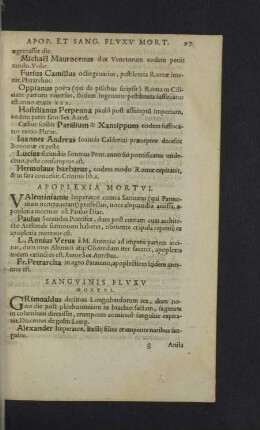 APOP. ET SANG. FLVXV MORT. 97
ægrotasse die.
Michaël Maurocenus dux Venetorum eodem periit
modo. Volat.
Furius Camillus octogenarius, pestilentia Romæ inte-
riit. Plutarchus.
Oppianus poëta (qui de piscibus scripsit) Roma in Cili-
ciam patriam reversus, ibidem ingruente pestilentia suffocatus
est, anno ætatis
Hostilianus Perpenna paulò post assumpsti imperium,
eodem pariter fato Sex. Aurel.
Casus similis Paralium & Xantippum eodem suffoca-
tos Plutar.
Ioannes Andreas Ioannis Calderini præceptor decessit
Bononiæ ex peste.
Lucius secundus summus Pont. anno sui pontificatus unde-
cimo, peste consumptus est.
Hermolaus barbarus, eodem modo Romæ expiravit,
& in fata concessit. Crinitus lib. 1.
APOPLEXIA MORTVI.
VAlentinianus Imperator contra Sarmatas (qui Panno-
niam occupaverant) profectus, voce aliquandiu amissa, a-
poplexia mortuus est. Paulus Diac.
Paulus Secundus Pontifex, dum post cœnam cum archite-
cto Aristotele sermonem haberet, oboriente crapula repenti, ex
apoplexia mortuus est.
L. Annius Verus à M. Antonio ad imperii partem acci-
tus, dum Altinum atque Concordiam iter faceret, apoplexia
eodem extinctus est. Autor Sex. Aurelius.
Fr. Petrarcha in agro Patavino, apoplecticus itidem
est.
SANGVINIS FLVXV
MORTVI.
GRimoaldus decimus Longobardorum rex, dum nono
die post phlebotomiam in brachio factam, sagittam
in columbam direxisset, erumpente acriùs sanguine expira-
vit. Diaconus de gestis Long.
Alexander Imperator, Basilij filius erumpente naribus san-
guine.
g Attila